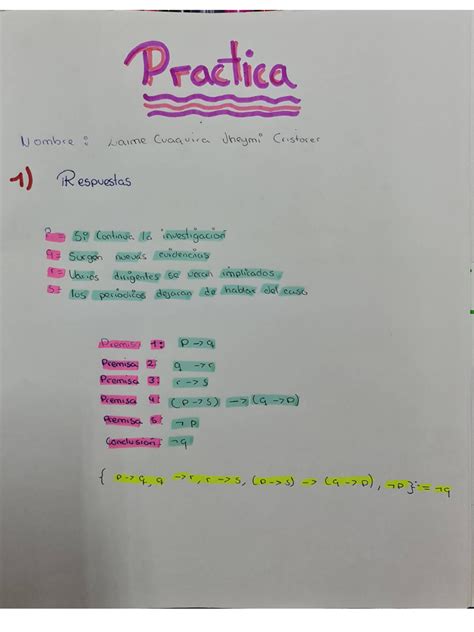 Practica
Nombre : Laime Cuaquira Jheymi Cristofer
1) Respuestas
P = Si Continua la investigacion
q = Surgen nuevas evidencias
r = Varios dirigentes se veran implicados
S = los periodicos dejaran de hablar del caso
Premisa 1: P → q
Premisa 2: q → r
Premisa 3: r → S
Premisa 4: (P → S) → (q → P)
Premisa 5: ¬ P
Conclusion: ¬q
{ P → q, q → r, r → S, (P → S) → (q → P), ¬P } ⊨ ¬q